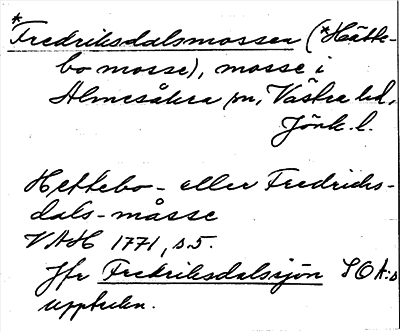 *
Fredriksdalsmossen (*Hätte-
bo mosse), mosse i
Almesåkra sn, Västra hd,
Jönk. l.
Hettebo- eller Fredrichs-
dals-måsse
VAH 1771, s 5.
Jfr Fredriksdalssjön SOA:s
uppteckn.